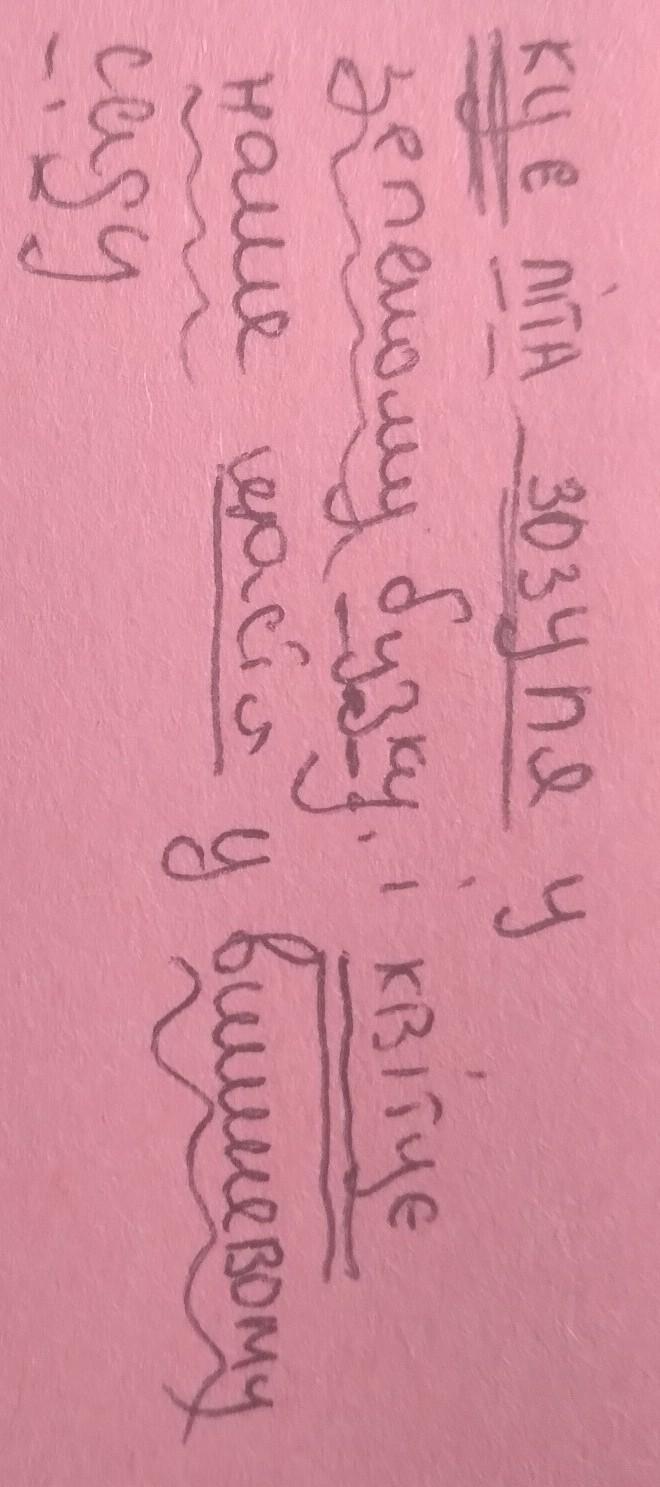 кує літа зозуля у
зеленому бузку, і квітує
наше щастя у вишневому
саду